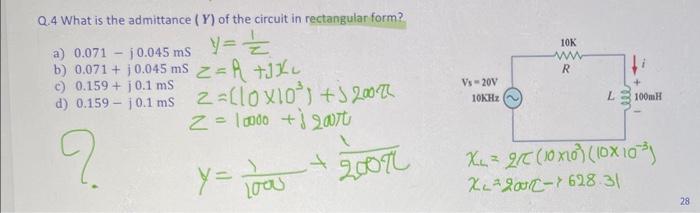 Q.4 What is the admittance (Y) of the circuit in rectangular form?
a) 0.071 − j 0.045 mS
b) 0.071 + j 0.045 mS
c) 0.159 + j 0.1 mS
d) 0.159 − j 0.1 mS
y = 1/z
z = R + jXL
z = (10×10³) + j 200π
z = 10000 + j 200π
?
y = 1/1000 + 1/200π
10K
R
Vs = 20V
10KHz
i
+
L
100mH
−
XL = 2π (10×10³)(10×10⁻³)
XL = 200π → 628.31
28